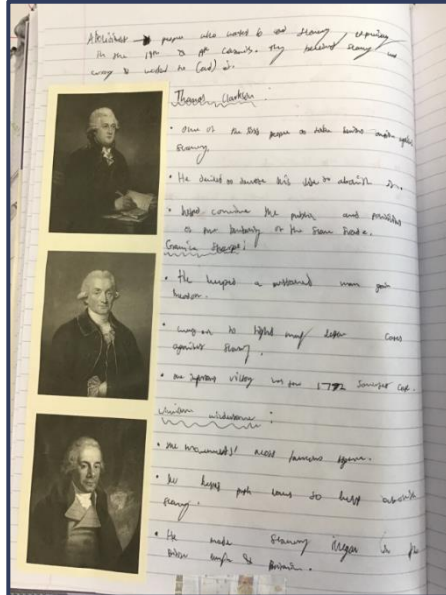 Abolitionist → people who worked to end slavery, especially
in the 18th & 19th Centuries. They believed slavery was
wrong & wanted to (end) it.
Thomas Clarkson:
• one of the first people to take action against
slavery.
• He decided to devote his life to abolish it.
• helped convince the public and
of the of the Slave Trade.
Granville Sharpe:
• He helped a man gain
freedom.
• went on to fight many legal cases
against slavery.
• one famous victory was the 1772 Somerset Case.
William Wilberforce:
• the movements' most famous figure.
• he helped push laws to help abolish
slavery.
• He made Slavery illegal in the
British Empire & Britain.